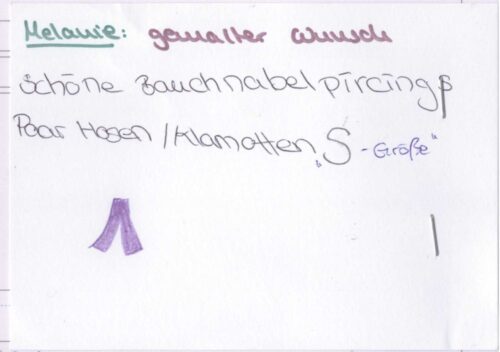 Melanie: gemalter Wunsch
Schöne Bauchnabelpircings
Paar Hosen/Klamotten „S - Größe“